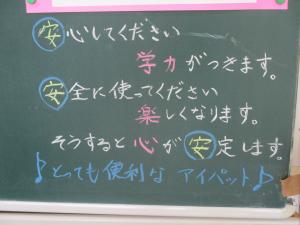 安心してください
学力がつきます。
安全に使ってください
楽しくなります。
そうすると心が安定します。
♪とっても便利な アイパット♪